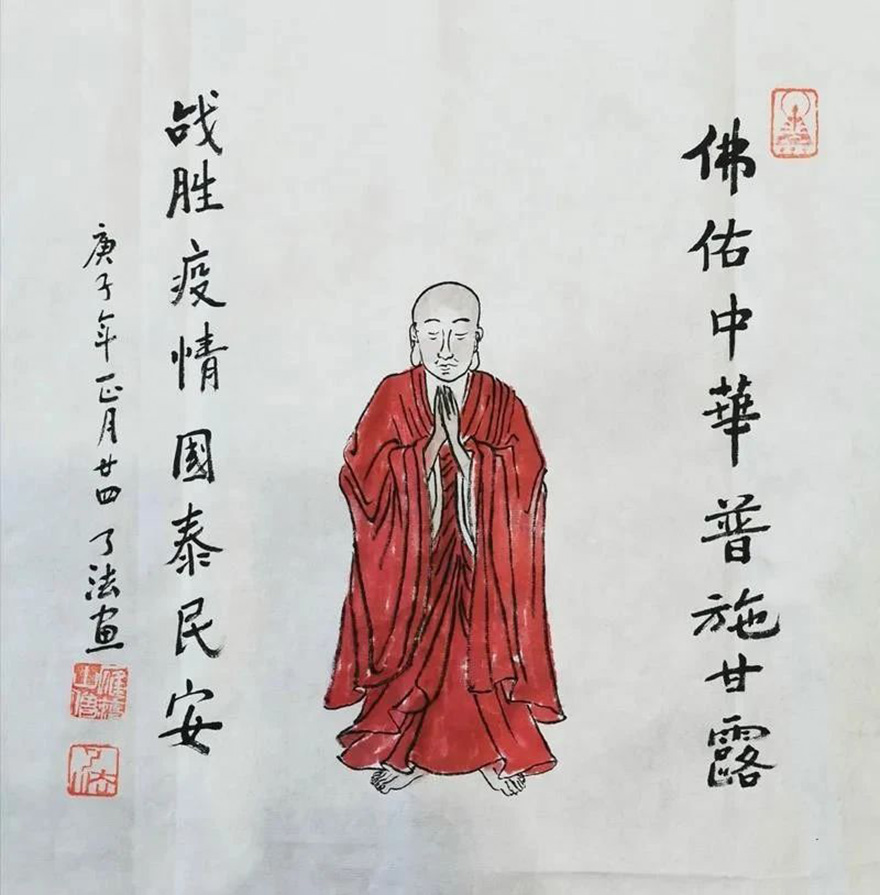 佛佑中華普施甘露
战胜疫情國泰民安
庚子年正月廿四了法画
了法